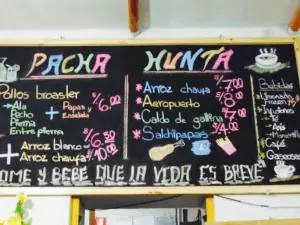 PACHA HUNTA
Pollos broaster
Ala
Pecho
Pierna
Entre pierna
+ Papas y Ensalada
S/6.00
+ Arroz blanco S/6.50
+ Arroz chaufa S/10.00
* Arroz chaufa S/7.00
* Aeropuerto S/8.00
* Caldo de gallina S/7.00
* Salchipapas S/4.00
Bebidas
Café
Gaseosa
COME Y BEBE QUE LA VIDA ES BREVE